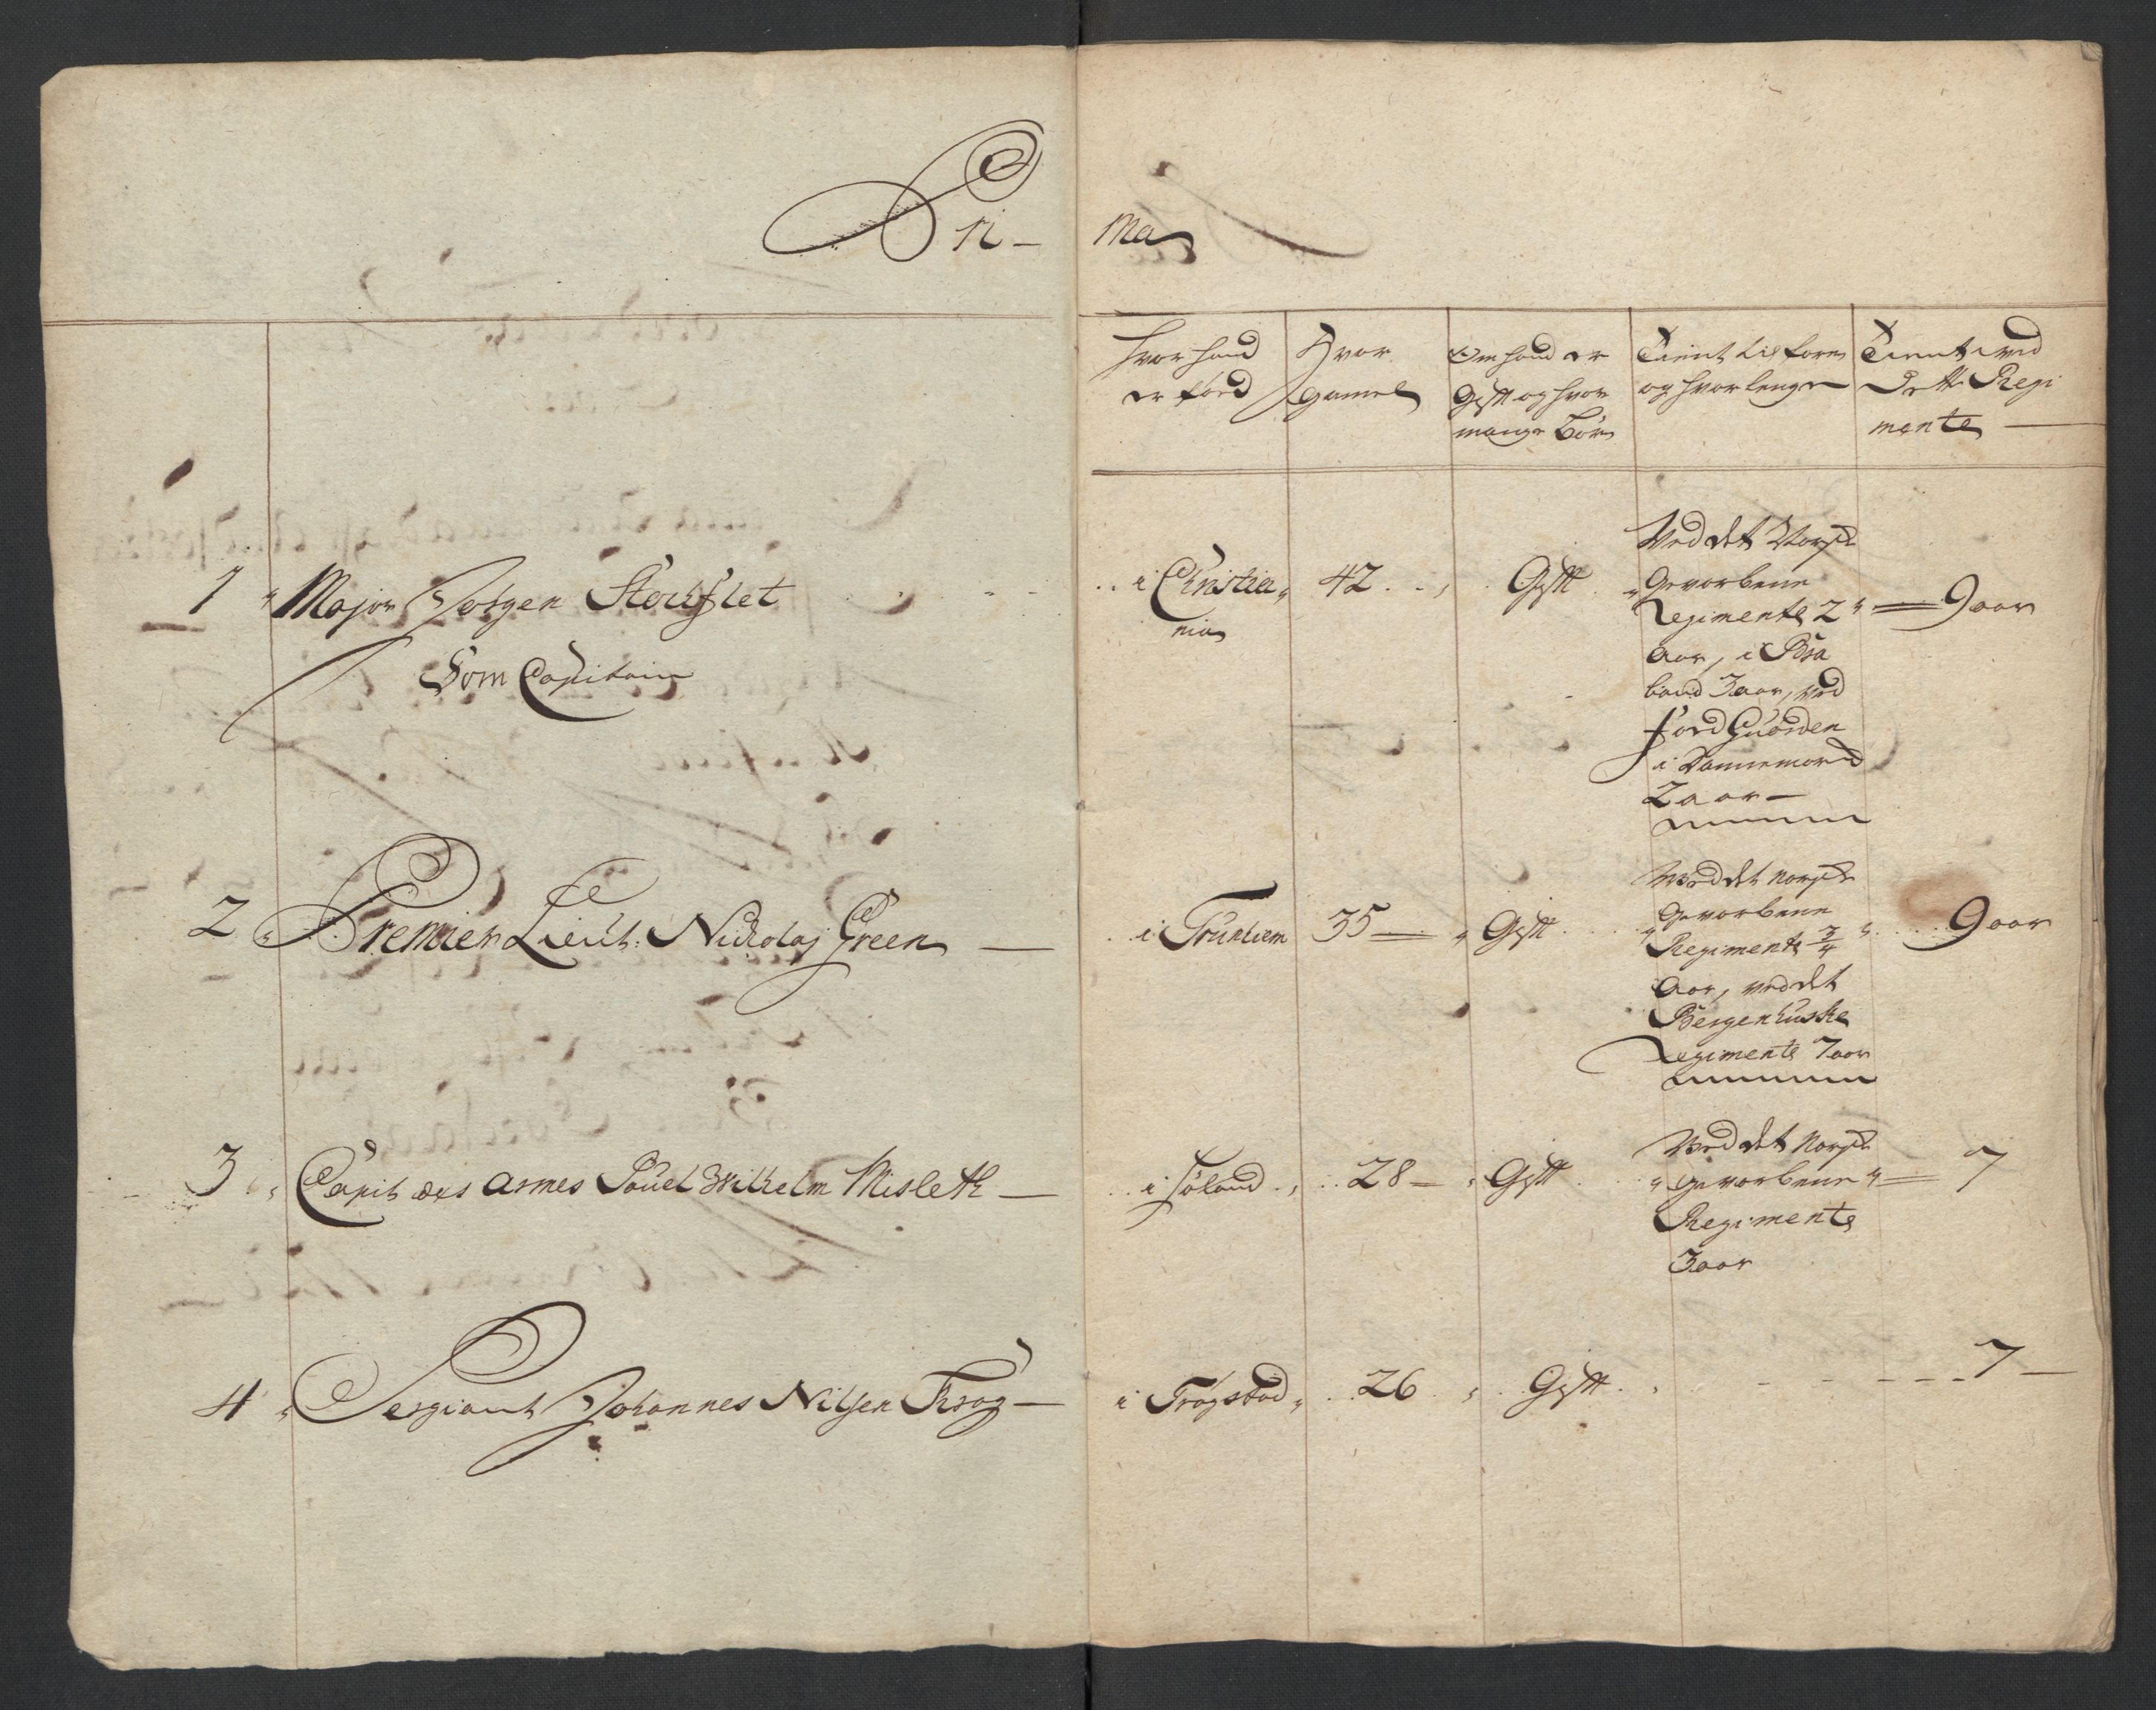 Pri-
ma
hvor hand
er fød
Hvor
gamel
Om hand er
Gift og hvor
mange Børn
Tient til forn
og hvor lenge
Tient ved
Dette Regi
mente
1 Major Jørgen Stochflet
Som Capitain
i Christia
nia
42
Gift
Ved det Norsche
Gevorbene
Regimente 2
aar, i Bra
band 3 aar, ved
ford Guarden
i Dannemarck
2 aar
9 aar
2 Premier Lieut: Nickolaj Green
i Trunhiem
35
Gift
Ved det Norsche
Gevorbene
Regimente 3/4
Aar, ved det
Bergenhuske
Regimente 7 aar
9 aar
3 Capit des armes Povel Wilhelm Misleth
i Høland
28
Gift
Ved det Norsche
gevorbene
Regimente
3 aar
7
4 Sergiant Johannes Nilsen Krog
i Trøgstad
26
Gift
7